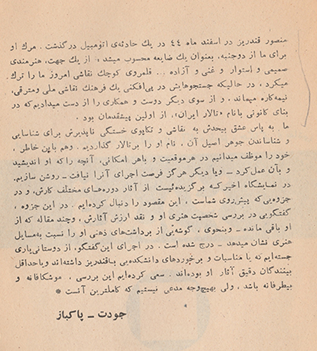 منصور قندریز در اسفند ماه ٤٤ در یك حادثه‌ی اتومبیل درگذشت . مرگ او
برای ما از دوجنبه، بعنوان یك ضایعه محسوب میشد ، از یك جهت، هنرمندی
صمیمی و استوار و غنی و آزاده ... قلمروی کوچك نقاشی امروز ما را ترك
میکرد ، در حالیکه جستجوهایش در پی‌افکنی یك فرهنگ نقاشی ملی ومترقی،
نیمه‌کاره میماند ، و از سوی دیگر دوست و همکاری را از دست میدادیم‌که در
بنای کانونی بانام «تالار ایران» از اولین پیشقدمان بود .
ما به پاس عشق بیحدش به نقاشی و تکاپوی خستگی ناپذیرش برای شناسایی
و شناساندن جوهر اصیل آن ، نام او را برتالار گذاردیم . وهم باین خاطر ،
خود را موظف میدانیم در هرموقعیت و باهر امکانی، آنچه راکه او اندیشید
و بآن عمل‌کرد ـ ویا دیگر هرگز فرصت اجرای آنرا نیافت ـ روشن سازیم.
در نمایشگاه اخیرکه برگزیده‌ئیست از آثار دوره‌های مختلف کارش، و در
جزوه‌یی که پیش‌روی شماست ، این مقصود را دنبال کرده‌ایم . در این جزوه ،
گفتگویی در بررسی شخصیت هنری او و نقد ارزش آثارش ، وچند مقاله که از
او باقی مانده ـ وبنحوی ، گوشه‌یی از برداشت‌های ذهنی او را نسبت به‌مسایل
هنری نشان میدهد ـ درج شده است . در اجرای این‌گفتگو، از دوستانی‌یاری
جسته‌ایم که با مناسبات و برخوردهای دانشکده‌یی باقندریز داشته‌اند ویاحداقل
بینندگان دقیق آثار او بوده‌اند . سعی کرده‌ایم این بررسی ، موشکافانه و
بیطرفانه باشد ، ولی بهیچ‌وجه مدعی نیستیم که کاملترین آنست •
جودت ـ پاکباز